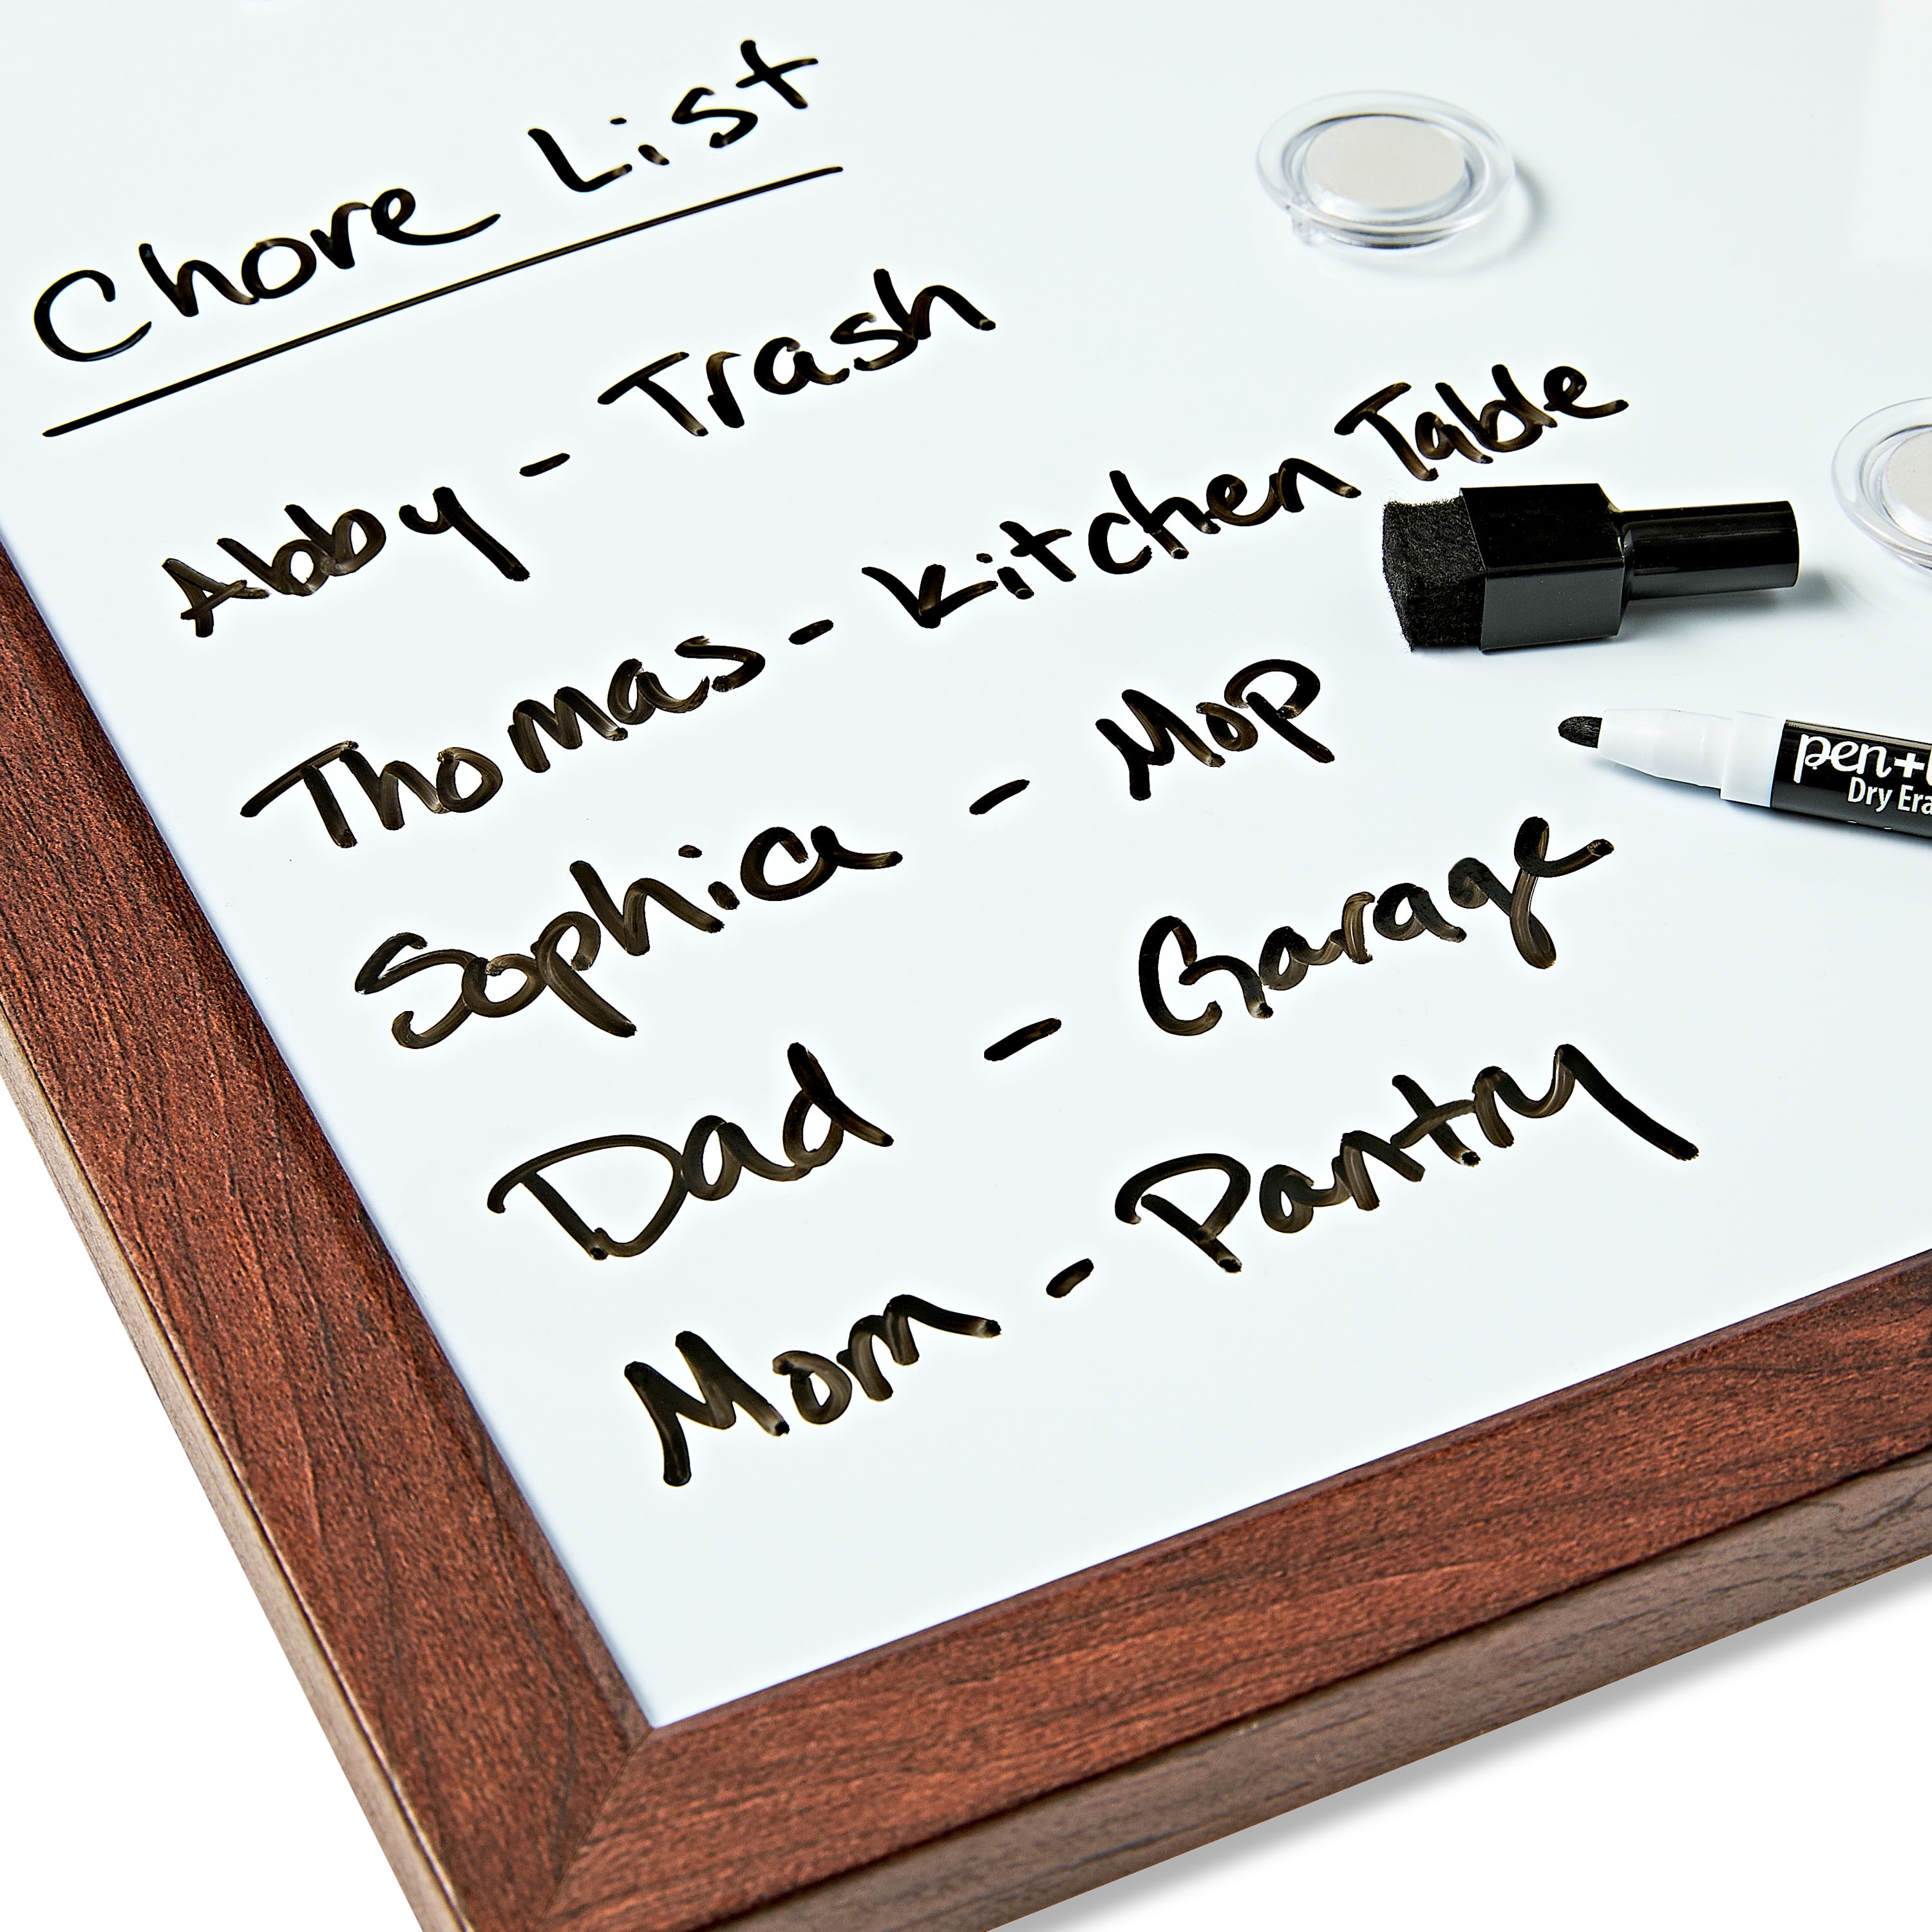 Chore List
Abby - Trash
Thomas - Kitchen Table
Sophia - Mop
Dad - Garage
Mom - Pantry
pen+
Dry